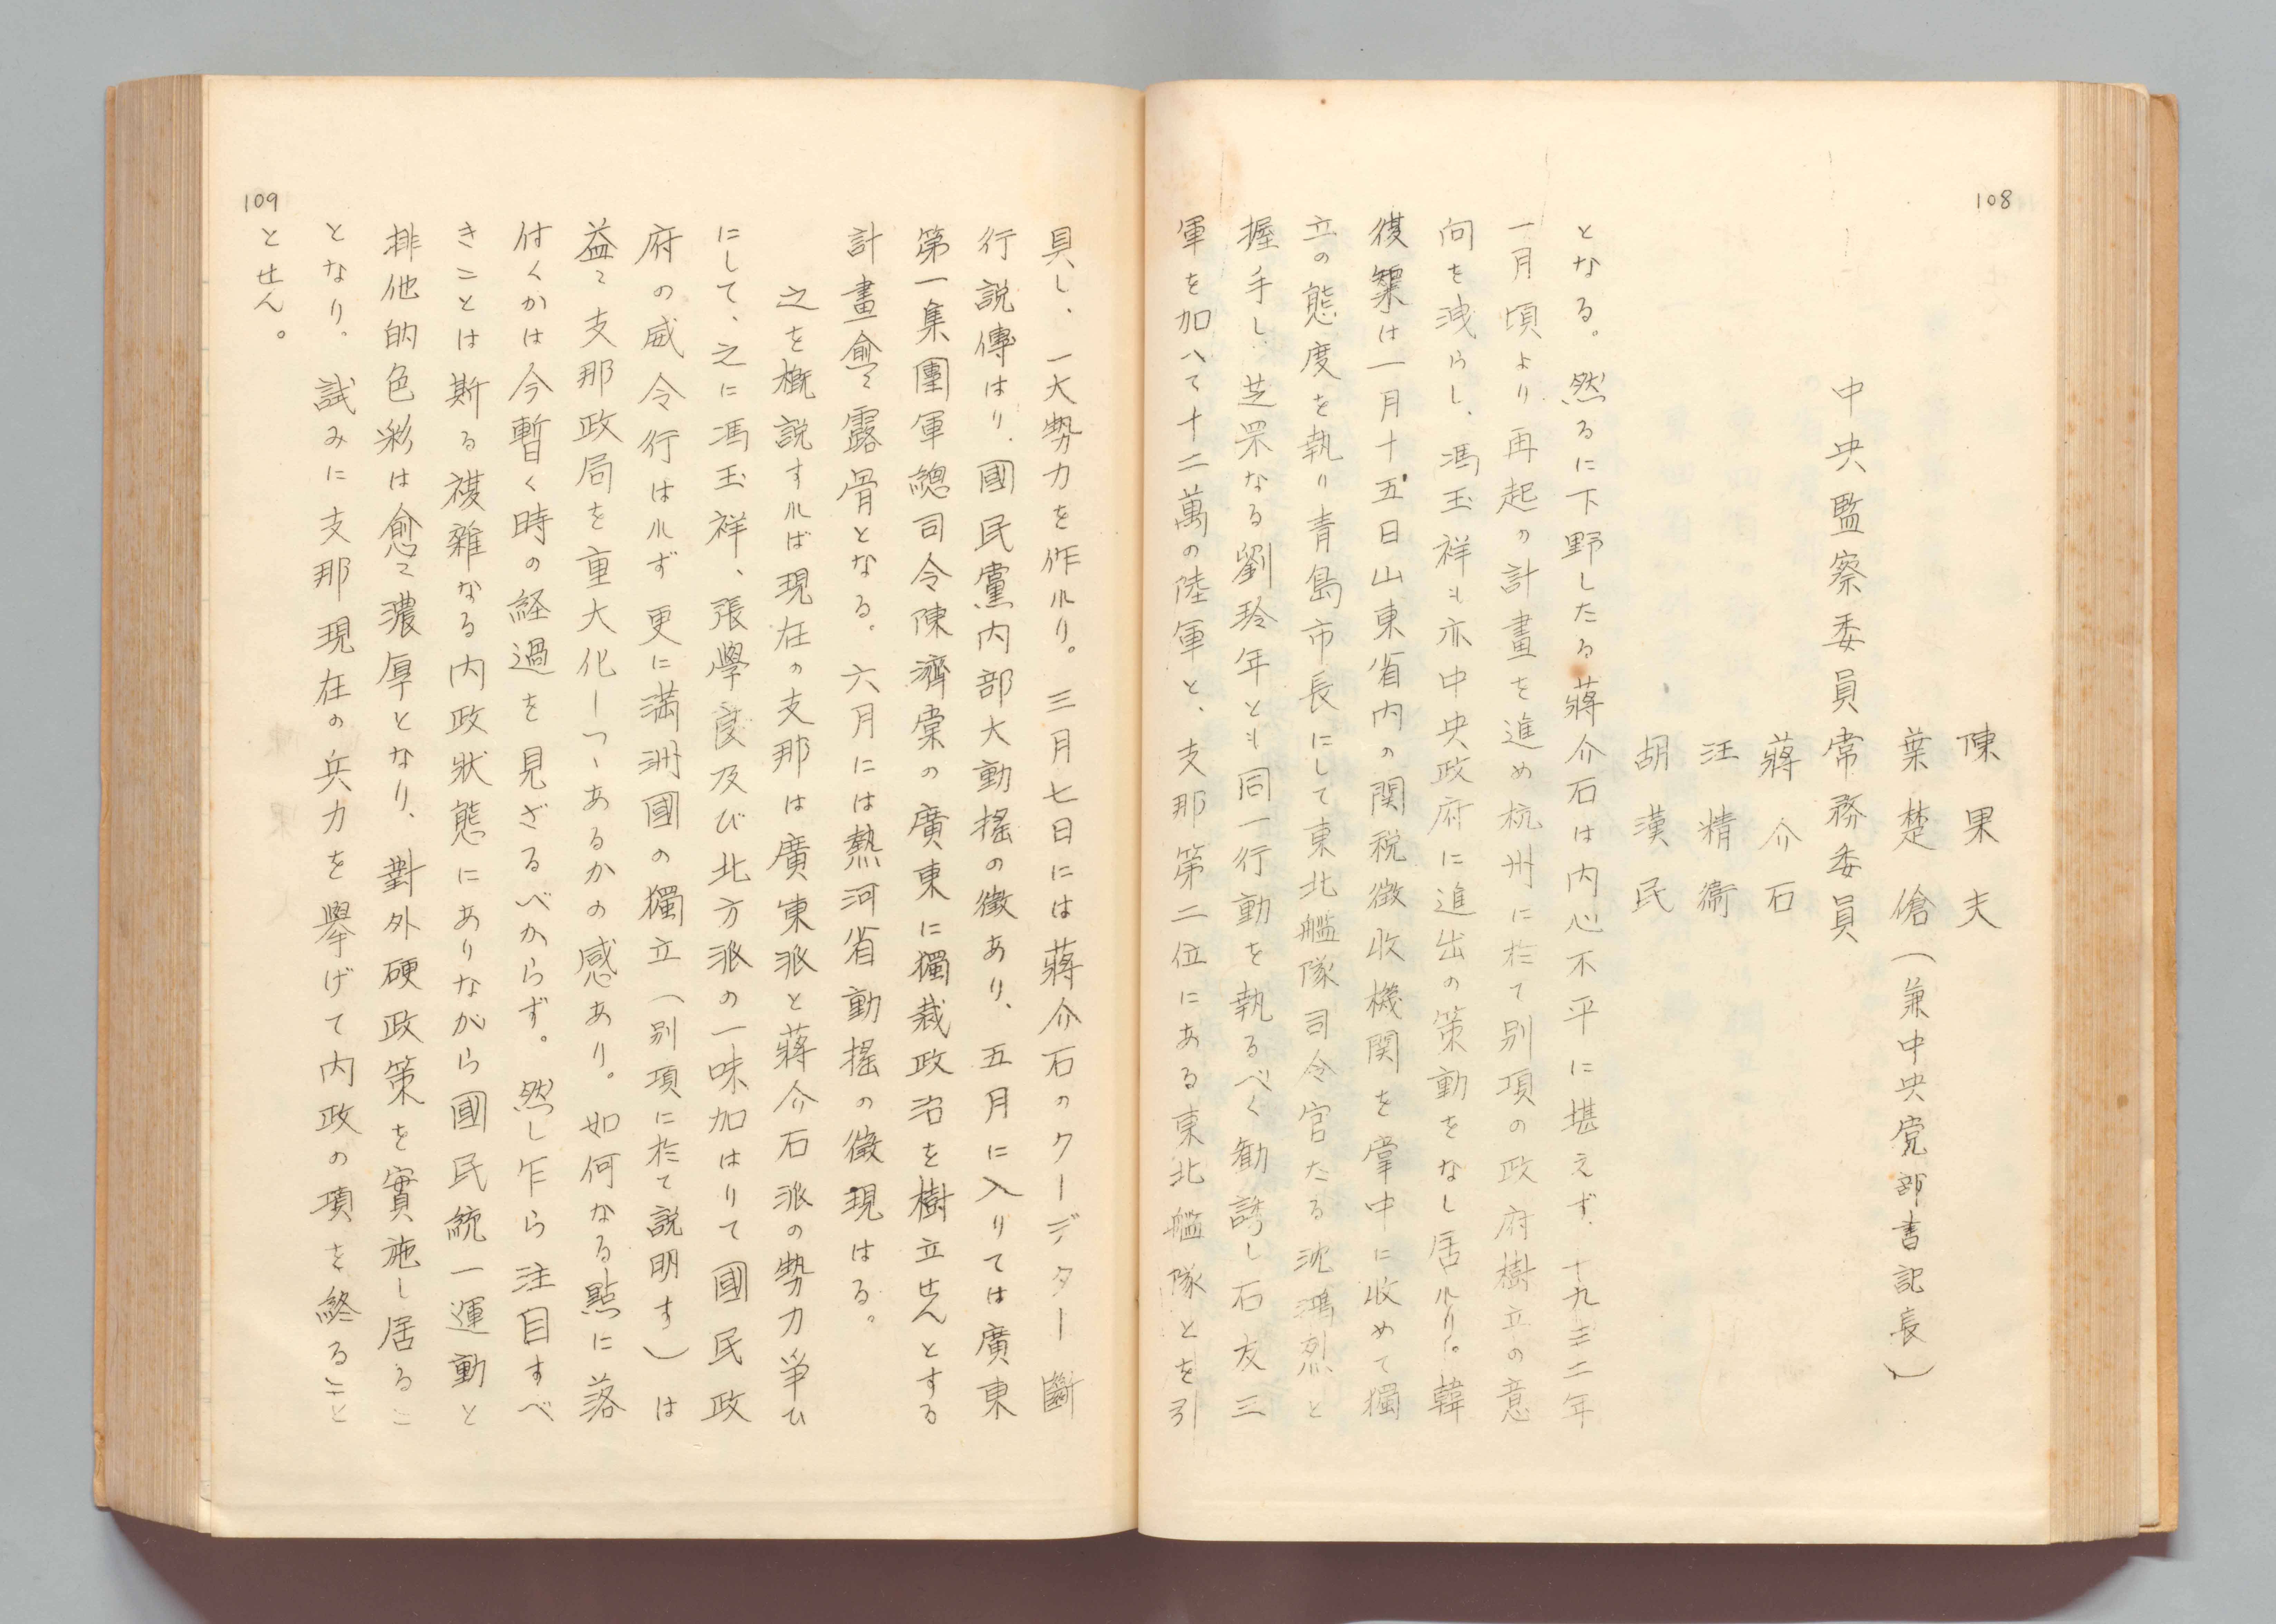 108
陳果夫
葉楚傖(兼中央党部書記長)
中央監察委員常務委員
蔣介石
汪精衞
胡漢民
となる。然るに下野したる蔣介石は内心不平に堪えず、一九三二年
一月頃より再起の計畫を進め杭州に於て別項の政府樹立の意
向を洩らし、馮玉祥も亦中央政府に進出の策動をなし居れり。韓
復榘は一月十五日山東省内の関税徴收機関を掌中に收めて獨
立の態度を執り青島市長にして東北艦隊司令官たる沈鴻烈と
握手し、芝罘なる劉玲年とも同一行動を執るべく勧誘し石友三
軍を加へて十二萬の陸軍と、支那第二位にある東北艦隊とを引
具し、一大勢力を作れり。三月七日には蔣介石のクーデター斷
行説傳はり、國民黨内部大動搖の徴あり、五月に入りては廣東
第一集團軍總司令陳濟棠の廣東に獨裁政治を樹立せんとする
計畫愈々露骨となる。六月には熱河省動搖の徴現はる。
之を概説すれば現在の支那は廣東派と蔣介石派の勢力爭ひ
にして、之に馮玉祥、張學良及び北方派の一味加はりて國民政
府の威令行はれず更に満洲國の獨立(別項に於て説明す)は
益々支那政局を重大化しつゝあるかの感あり。如何なる點に落
付くかは今暫く時の経過を見ざるべからず。然し乍ら注目すべ
きことは斯る複雑なる内政狀態にありながら國民統一運動と
排他的色彩は愈々濃厚となり、對外硬政策を實施し居るこ
となり。試みに支那現在の兵力を擧げて内政の項を終ること
とせん。
109